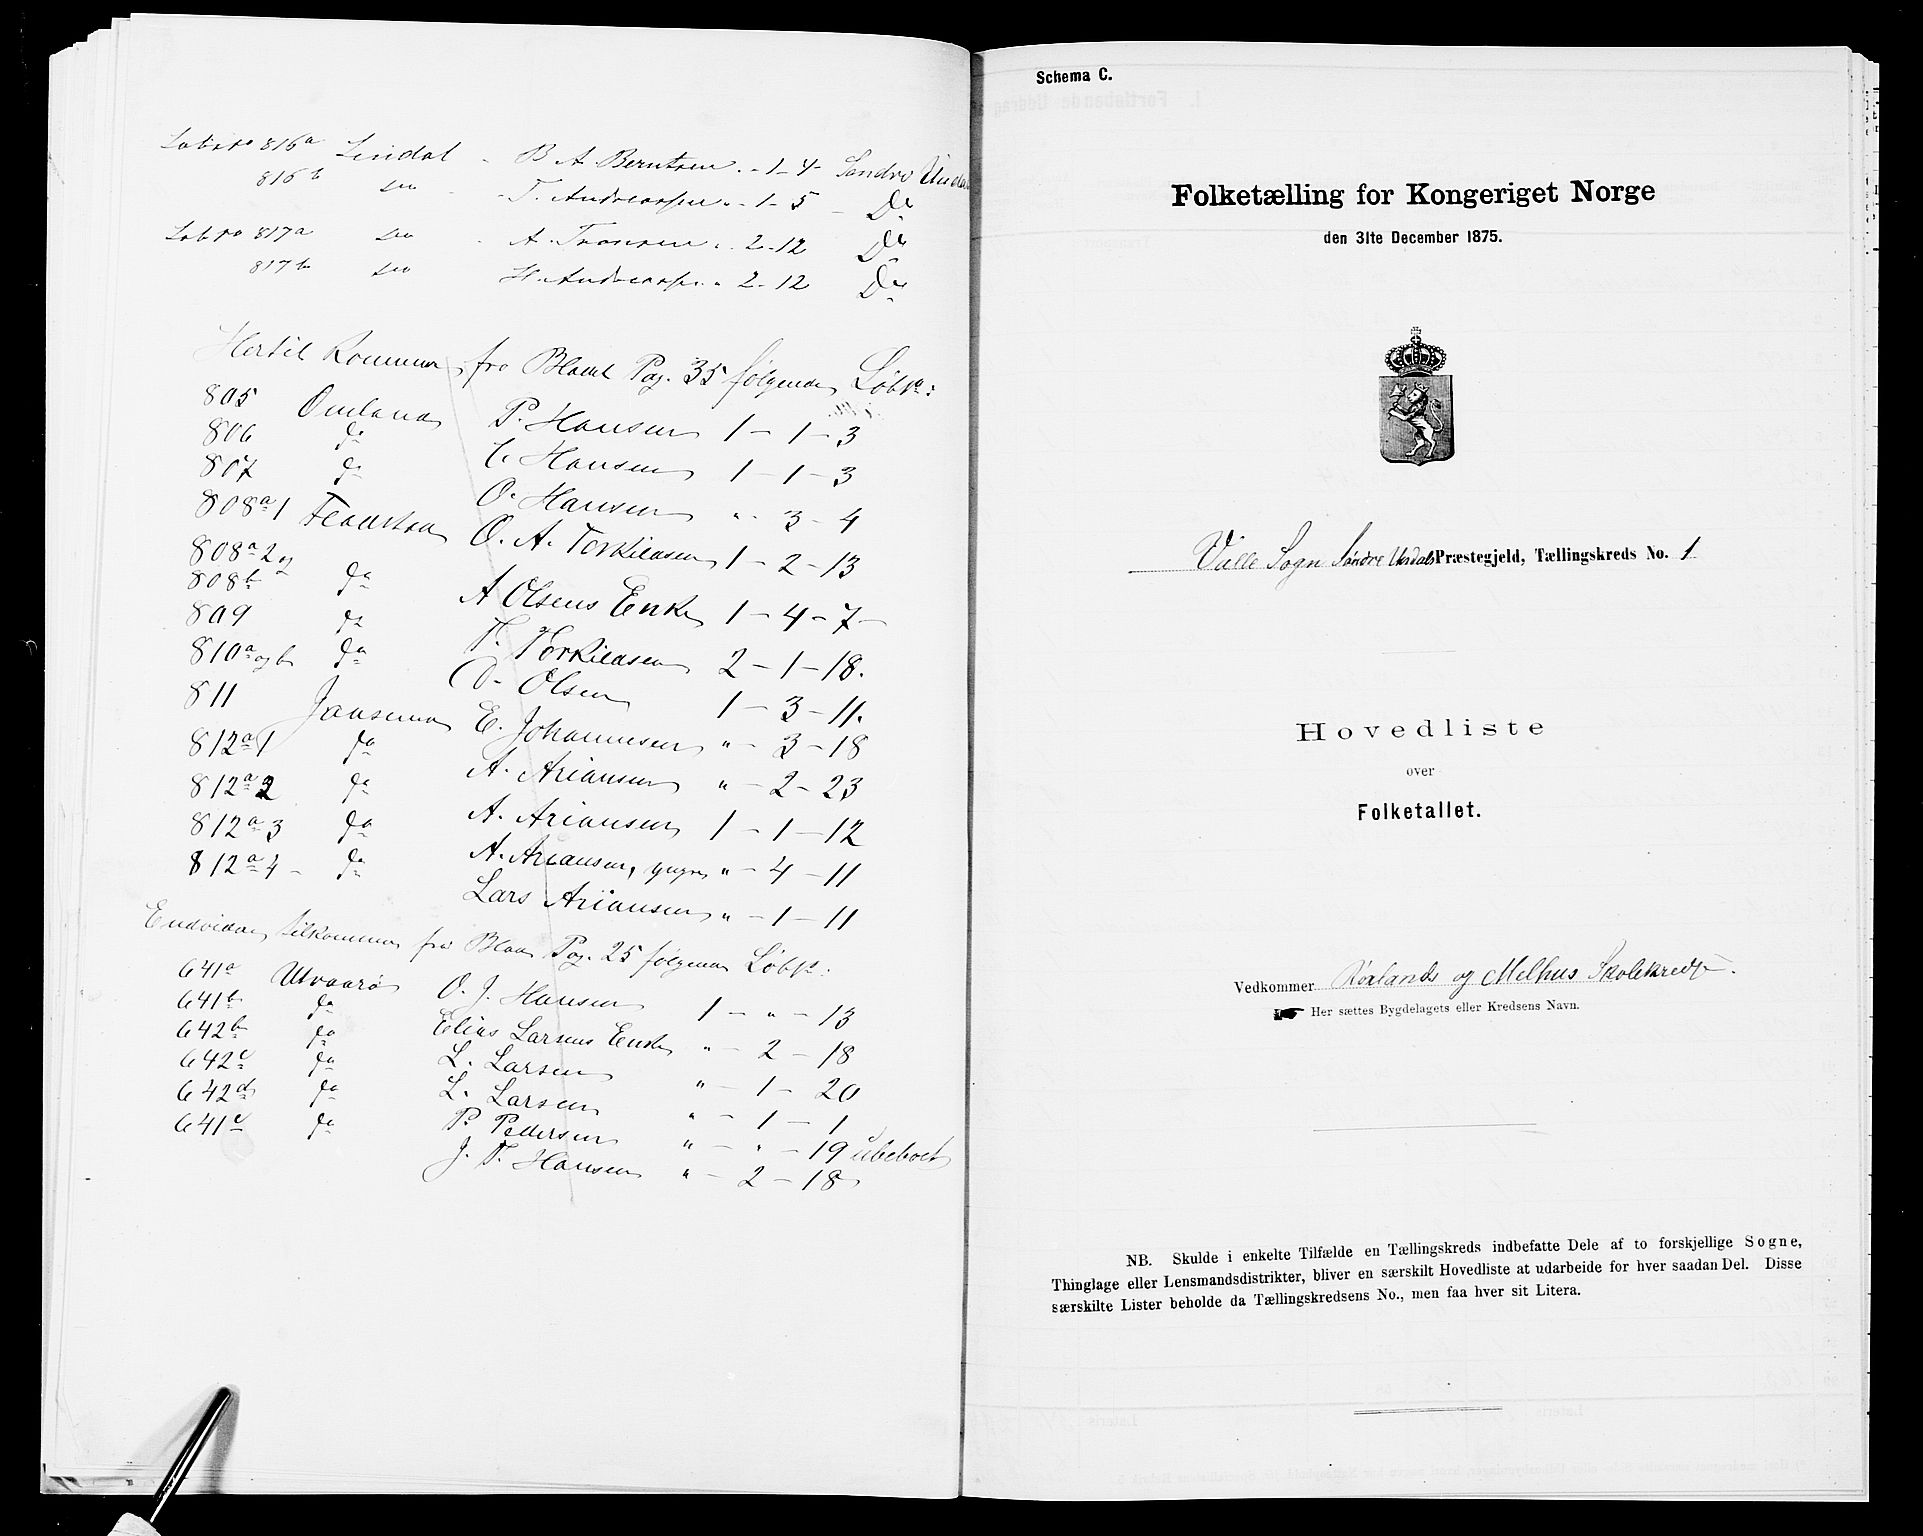 Løbno 816a Lindal - B A Berntsen - 1 - 4 - Søndre Undal
816b do - T. Andreassen - 1 - 5 - Do
Løbno 817a do - A. Tronsen " 2 - 12 Do
817b do H. Andreassen " 2 - 12 Do
Hertil Kommer fra Bladet Pag. 35 følgende Løbno:
805 Omland P. Hansen 1 - 1 - 3
806 do C. Hansen 1 - 1 - 3
807 do O. Hansen " 3 - 4
808a1 O. A. Torkildsen 1 - 2 - 13
808a2 og
808b do A Olsens Enke 1 - 4 - 7 -
809 do T. Torkildsen 2 - 1 - 18.
810a og b do O. Olsen 1 - 3 - 11.
811 E. Johannesen " - 3 - 18
812a1 do A. Ariansen " - 2 - 23
812a2 do A. Ariansen 1 - 1 - 12
812a3 do A. Ariansen, yngre " - 4 - 11
812a4 - do Lars Ariansen " - 1 - 11
Endvidere tilkommer fra Blad Pag. 25 følgende Løbno:
641a Udvaarø O. J. Hansen 1 - " - 13
641b do Elias Larsens Enke " - 2 - 18
642b do L. Larsen " - 1 - 20
642c do L. Larsen " - 1 - 1
642d do P. Pedersen " - " - 19 ubeboet
641c do J. T. Hansen " - 2 - 18
Schema C.
Folketælling for Kongeriget Norge
den 31te December 1875.
Valle Sogn Søndre Undals Præstegjeld, Tællingskreds No. 1
Hovedliste
over
Folketallet.
Vedkommer Rørlands og Melhus Skolekredse.
Her sættes Bygdelagets eller Kredsens Navn.
NB. Skulde i enkelte Tilfælde en Tællingskreds indbefatte Dele af to forskjellige Sogne,
Thinglage eller Lensmandsdistrikter, bliver en særskilt Hovedliste at udarbeide for hver saadan Del. Disse
særskilte Lister beholde da Tællingskredsens No., men faa hver sit Litera.